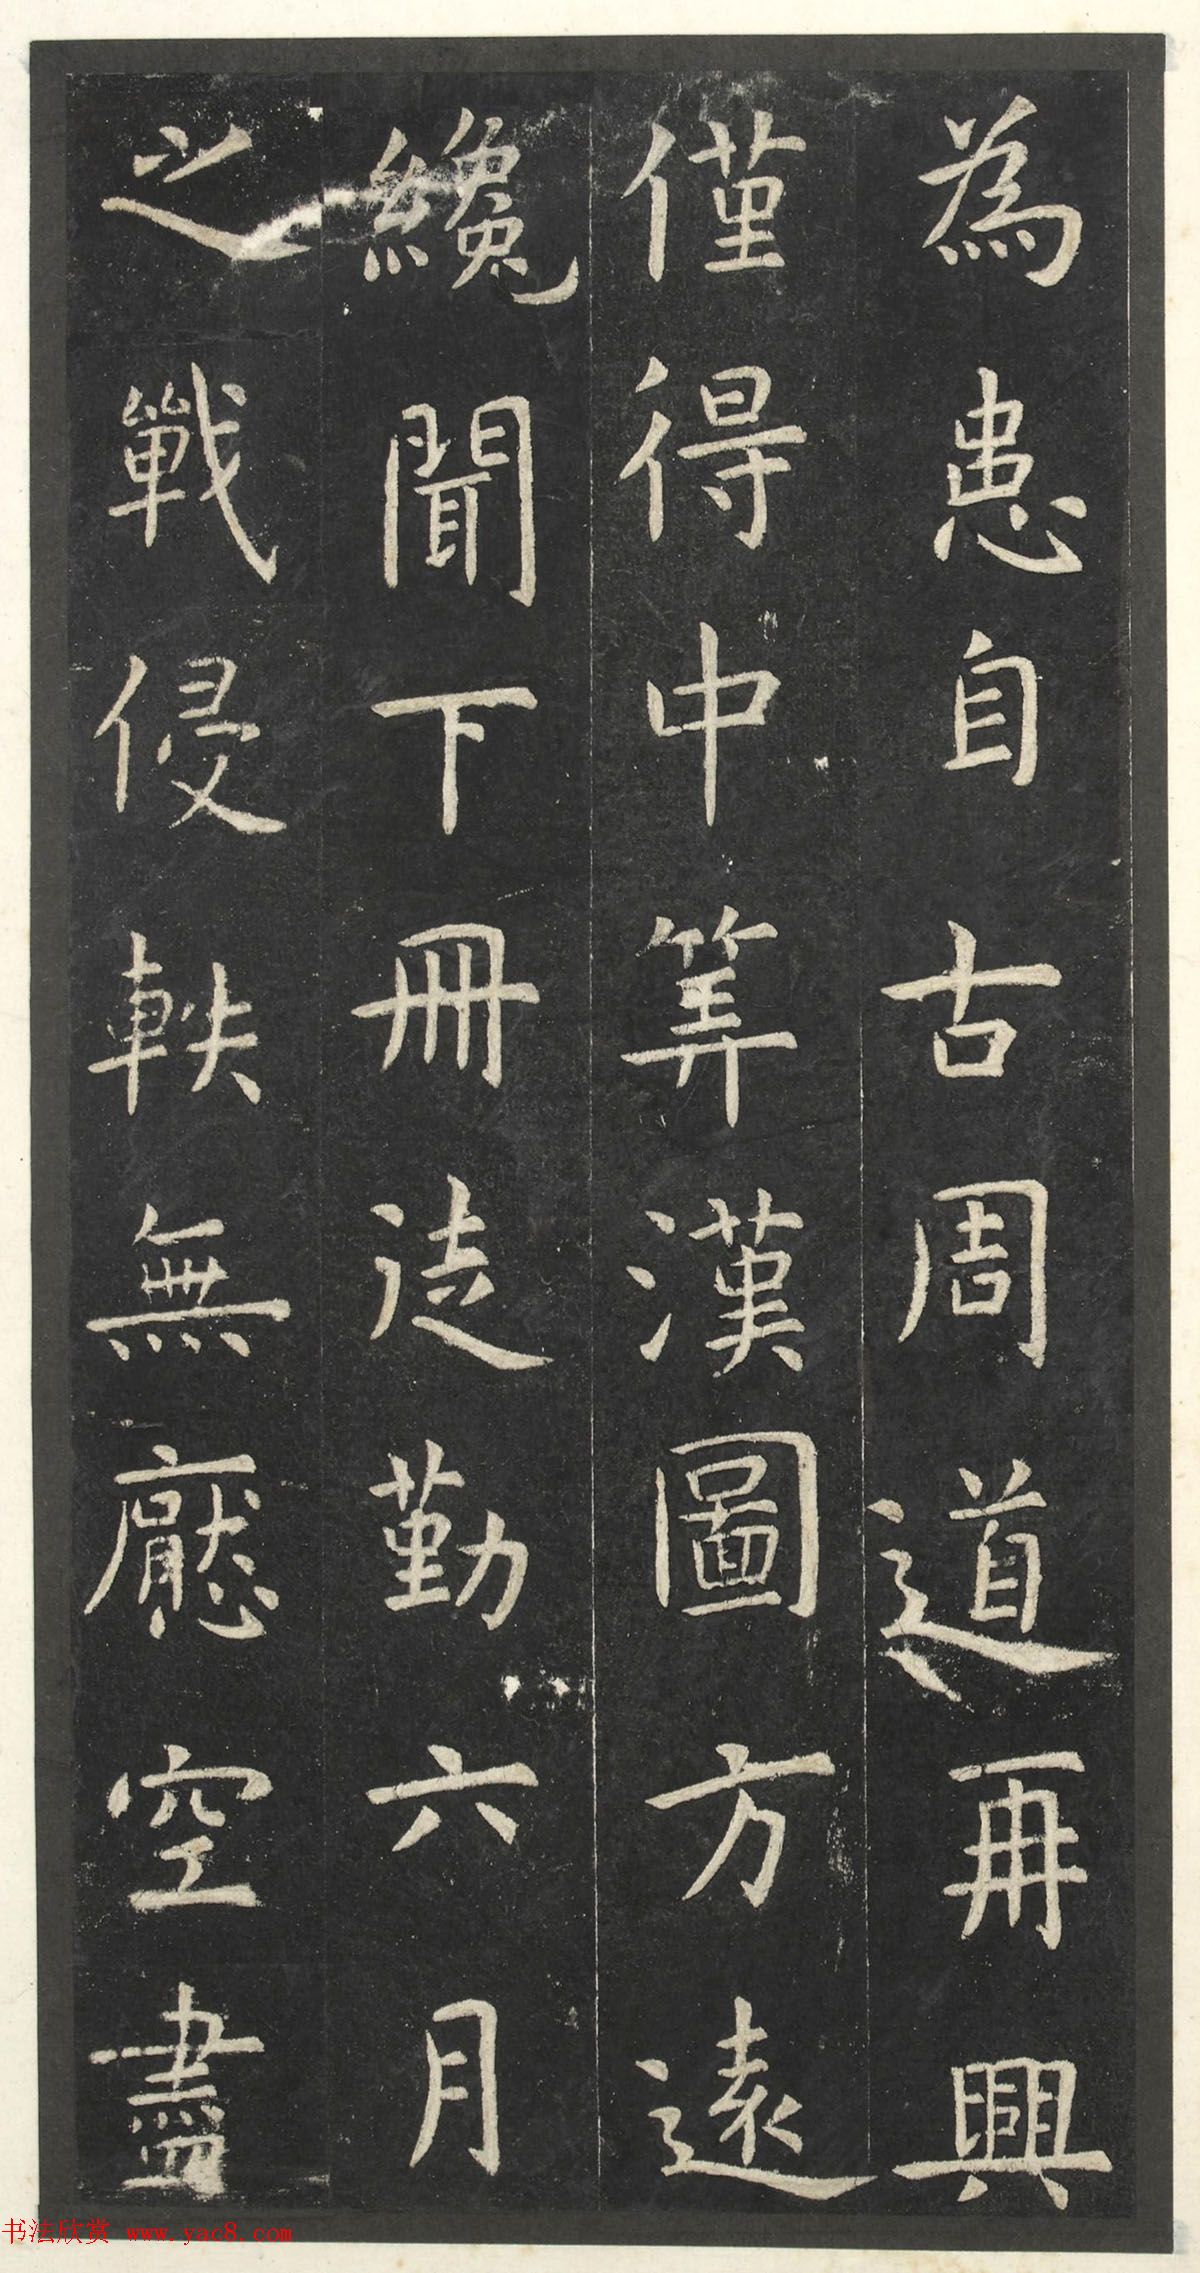 為患自古周道再興
僅得中筭漢圖方遠
纔聞下冊徒勤六月
之戰侵軼無厭空盡
书法欣赏 www.yac8.com